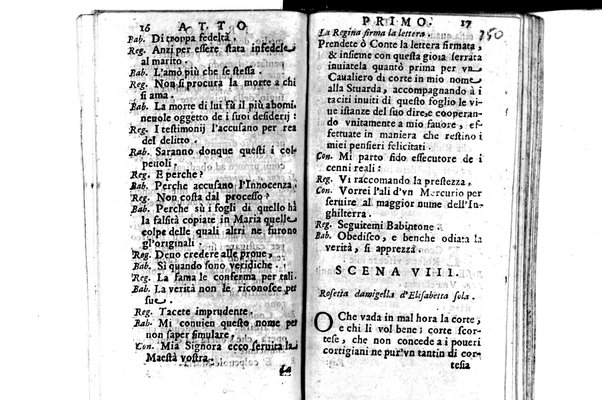 16 ATTO
Bab. Di troppa fedeltà.
Reg. Anzi per essere stata infedele
al marito.
Bab. L'amò più che se stessa.
Reg. Non si procura la morte a chi
si ama.
Bab. La morte di lui fù il più abomi
neuole oggetto de i suoi desiderij:
Reg. I testimonij l'accusano per rea
del delitto.
Bab. Saranno donque questi i col
peuoli.
Reg. E perche?
Bab. Perche accusano l'Innocenza.
Reg. Non costa dal processo?
Bab. Perche sù i fogli di quello hà
la falsità copiate in Maria quelle
colpe delle quali altri ne furono
gl'originali
Reg. Deuo credere alle proue,
Bab. Sì quando sono veridiche.
Reg. La fama le conferma per tali.
Bab. La verità non le riconosce per
sue.
Reg. Tacete imprudente.
Bab. Mi conuien questo nome per
non saper simulare.
Con. Mia Signora ecco seruita la
Maestà vostra.
La
PRIMO. 17
350
La Regina firma la lettera.
Prendete ò Conte la lettera firmata,
& insieme con questa gioia serrata
inuiatela quanto prima per vn
Caualiero di corte in mio nome
alla Stuarda, accompagnando à i
taciti inuiti di questo foglio le vi-
ue istanze del suo dire, e cooperan-
do vnitamente a mio fauore, ef-
fettuate in maniera che restino i
miei pensieri felicitati.
Con. Mi parto fido essecutore de i
cenni reali:
Reg. Vi raccomando la prestezza.
Con. Vorrei l'ali d'vn Mercurio per
seruire al maggior nume dell'In-
ghilterra.
Reg. Seguitemi Babintone.
Bab. Obedisco, e benche odiata la
verità, si apprezza.
SCENA VIII.
Rosetta damigella d'Elisabetta sola.
O Che vada in mal hora la corte,
e chi li vol bene: corte scor-
tese, che non concede a i poueri
cortigiani ne pur'vn tantin di cor-
tesia